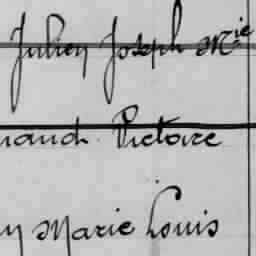 Julien Joseph Mie
naud Victoire
y Marie Louis